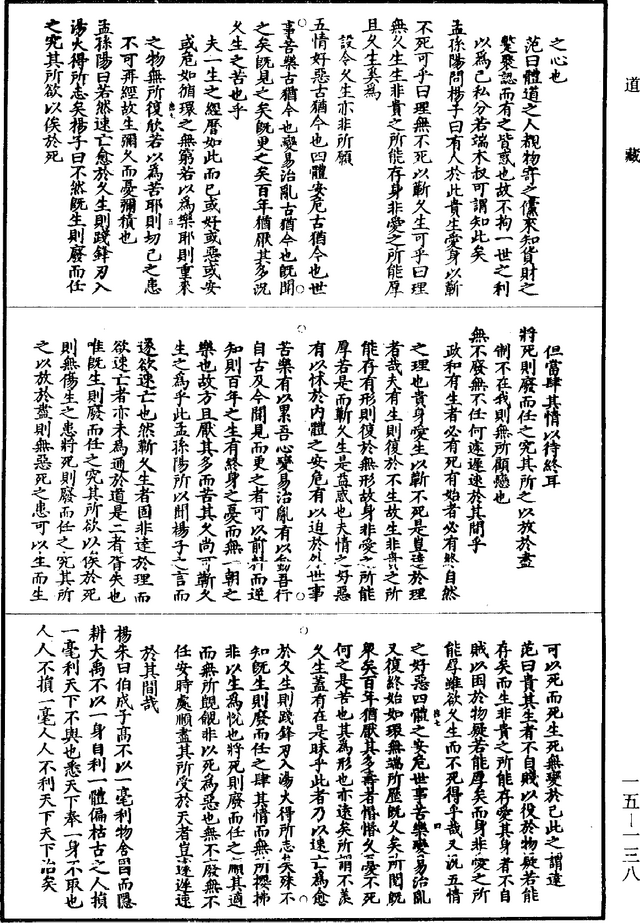 道藏
之心也
范曰體道之人觀物寄之儻來知貨財之
聚認而有之皆惑也故不拘一世之利
以為己私分若端木叔可謂知此矣
孟孫陽問楊子曰有人於此貴生愛身以蘄
不死可乎曰理無不死以蘄久生可乎曰理
無久生生非貴之所能存身非愛之所能厚
且久生奚為
設令久生亦非所願
五情好惡古猶今也四體安危古猶今也世
事苦樂古猶今也變易治亂古猶今也既聞
之矣既見之矣既更之矣百年猶厭其多況
久生之苦也乎
夫一生之經曆如此而已或好或惡或安
或危如循環之無窮若以為樂耶則重來
之物無所復欣若以為苦耶則切己之患
不可再經故生彌久而憂彌積也
孟孫陽曰若然速亡愈於久生則踐鋒刃入
湯火得所志矣楊子曰不然既生則廢而任
之究其所欲以俟於死
但當肆其情以待終耳
將死則廢而任之究其所之以放於盡
制不在我則無所顧戀也
無不廢無不任何遽遲速於其間乎
政和有生者必有死有始者必有終自然
之理也貴身愛生以蘄不死是豈達於理
者哉夫有生則復於不生故生非貴之所
能存有形則復於無形故身非愛之所能
厚若是而蘄久生是益惑也夫情之好惡
有以怵於內體之安危有以迫於外世事
苦樂有以累吾心變易治亂有以勌吾行
自古及今聞見而更之者可以前料而逆
知則百年之生有終身之憂而無一朝之
樂也故方且厭其多而苦其久尚可蘄久
生之為乎此孟孫陽所以聞楊子之言而
遽欲速亡也然蘄久生者固非達於理而
欲速亡者亦未為通於道是二者胥失也
唯既生則廢而任之究其所欲以俟於死
則無傷生之患將死則廢而任之究其所
之以放於盡則無惡死之患可以生而生
可以死而死生死無變於己此之謂達
范曰貴其生者不自賤以役於物疑若能
存矣而生非貴之所能存愛其身者不自
賊以困於物疑若能厚矣而身非愛之所
能厚雖欲久生而不死得乎哉又況五情
之好惡四體之安危世事苦樂變易治亂
又復終始如環無端所歷既久矣所閱既
衆矣百年猶厭其多壽者惛惛久憂不死
何之是苦也其為形也亦遠矣所謂不羨
久生蓋有在是昧乎此者乃以速亡為愈
於久生則踐鋒刃入湯火得所志矣殊不
知既生則廢而任之肆其情而無所攖拂
非以生為悅也將死則廢而任之順其適
而無所覬覦非以死為惡也無不廢無不
任安時處順盡其所受於天者豈遽遲速
於其間哉
楊朱曰伯成子高不以一毫利物舍國而隱
耕大禹不以一身自利一體偏枯古之人損
一毫利天下不與也悉天下奉一身不取也
人人不損一毫人人不利天下天下治矣
一五—一三八